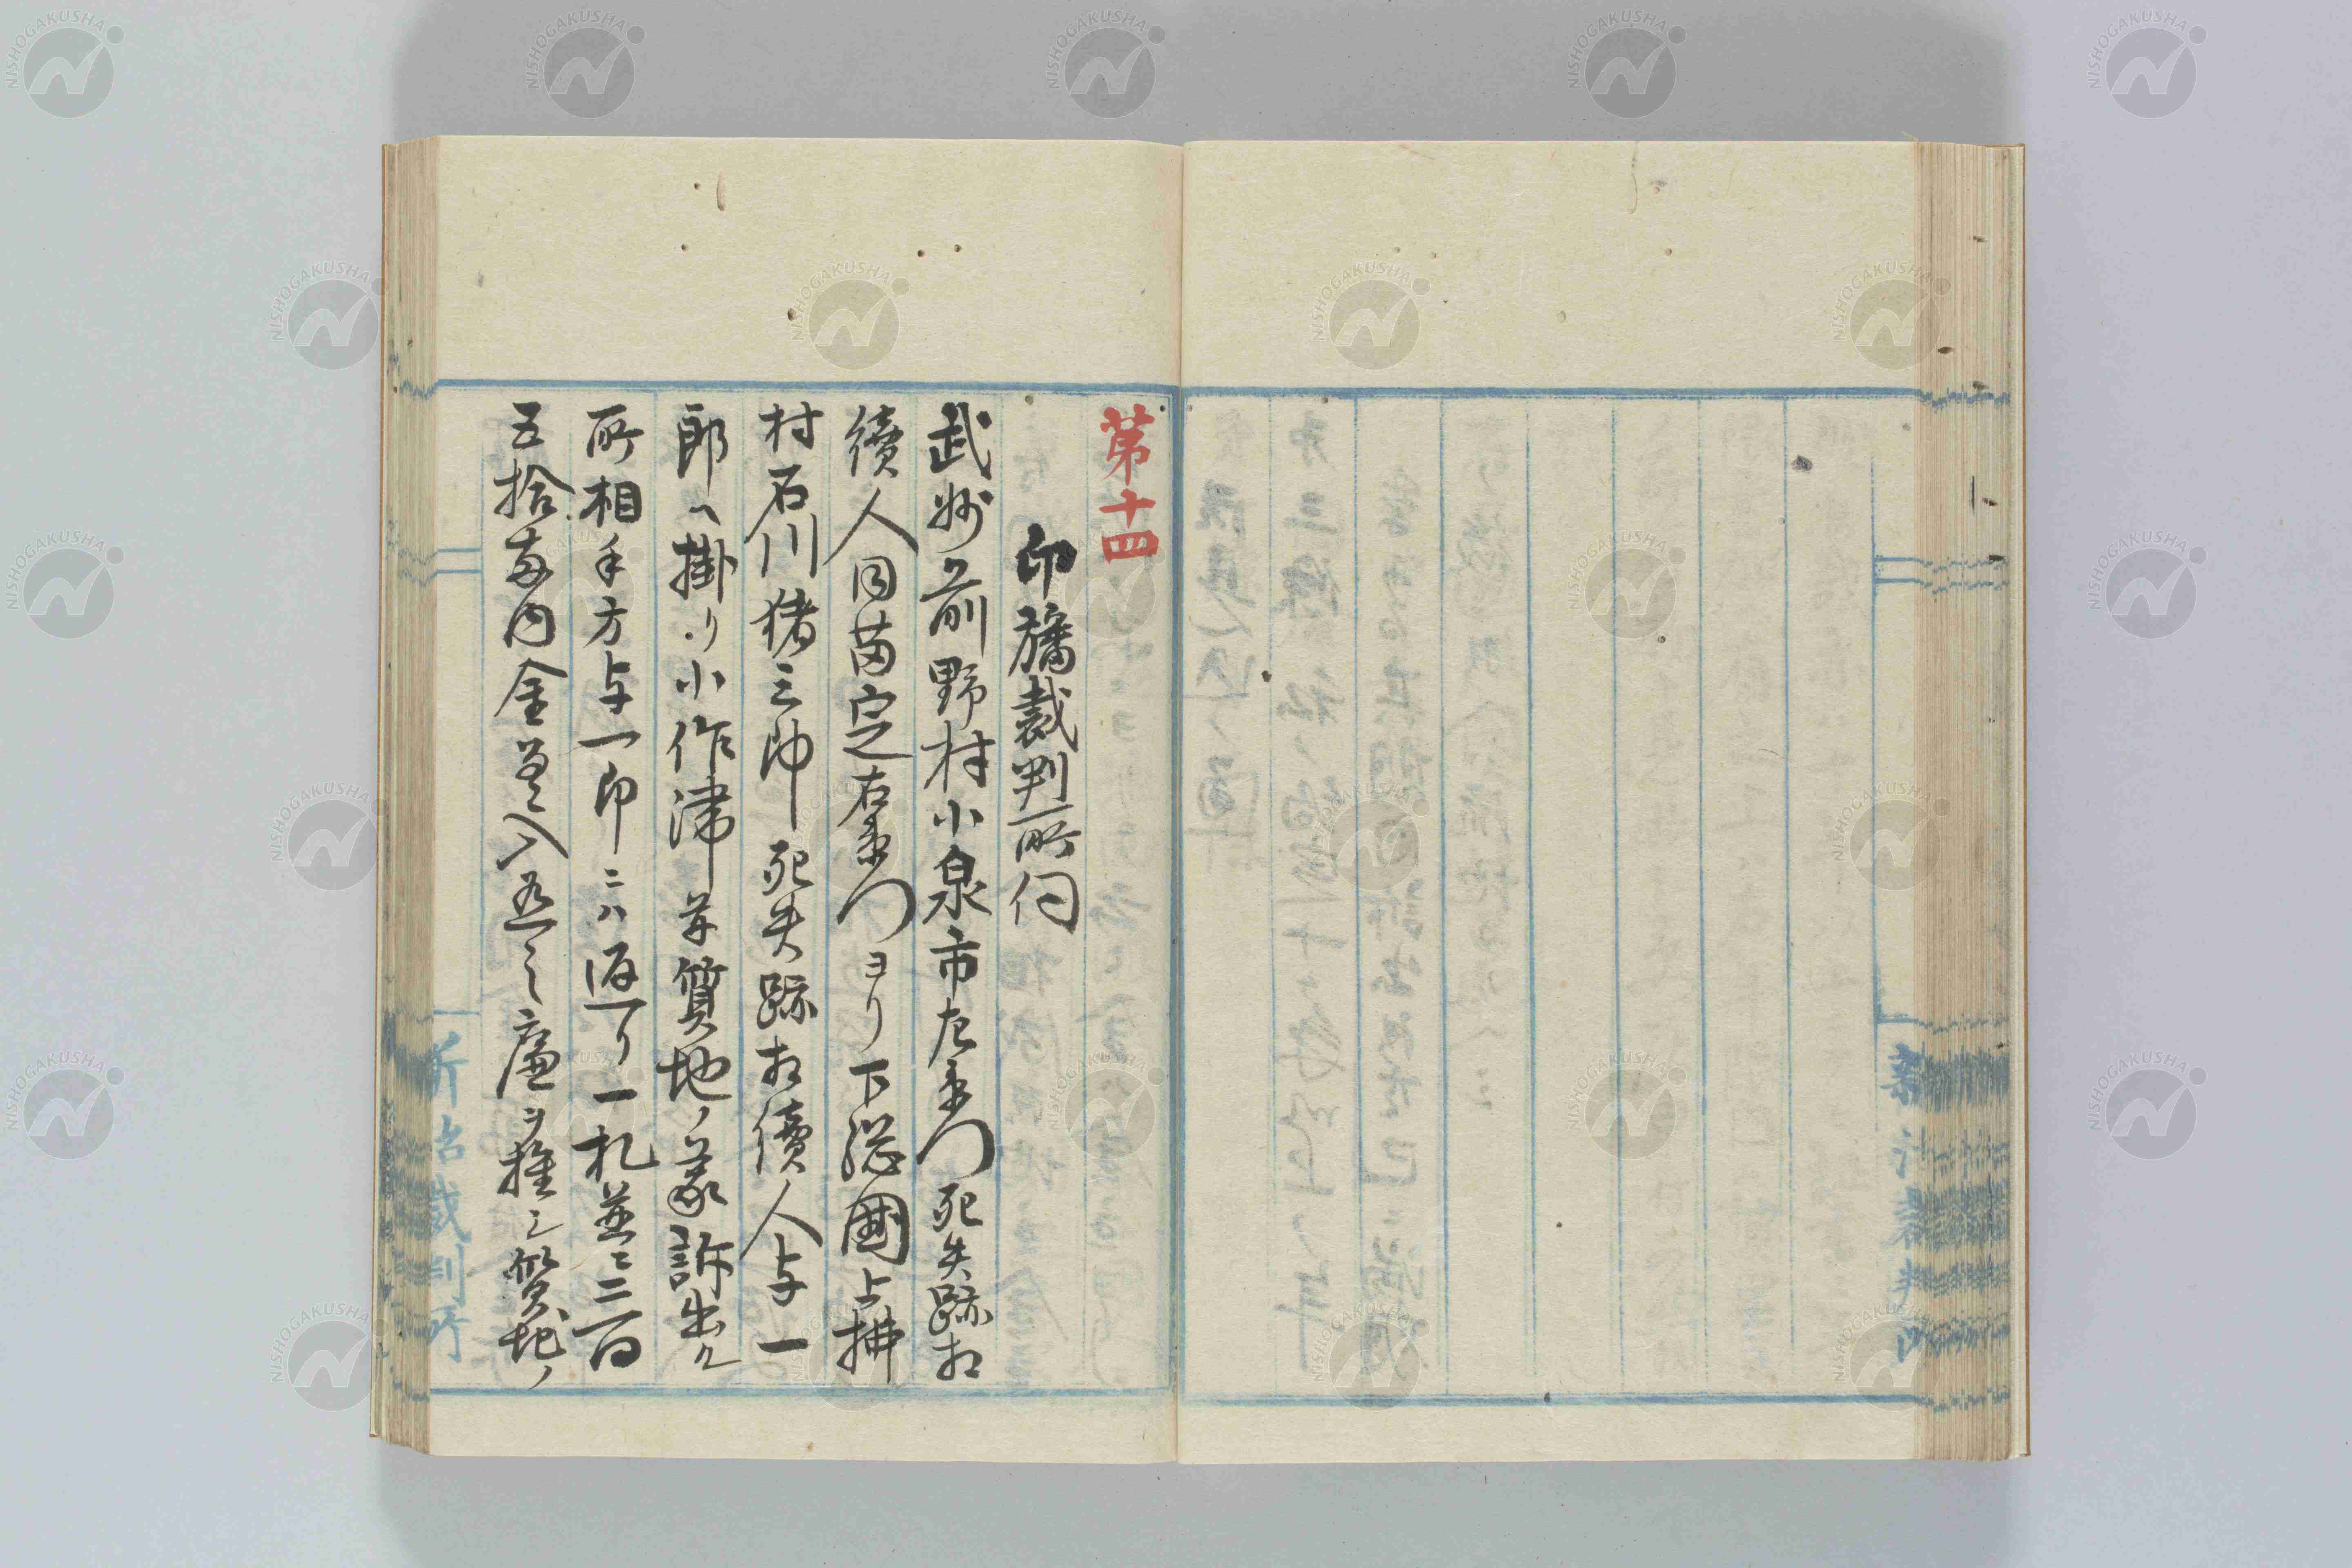 第十四
印旛裁判所伺
武州上前野村小泉市左衛門死失跡相
續人同苗定右衛門ヨリ下総國上拂
村石川猪三郎死失跡相續人与一
郎ヘ掛リ小作滞并質地ノ義訴出候
所相手方与一郎ニハ返リ一札并ニ二百
五拾両内金差入有之廉ヲ推シ質地ノ
新治裁判所
NISHOGAKUSHA